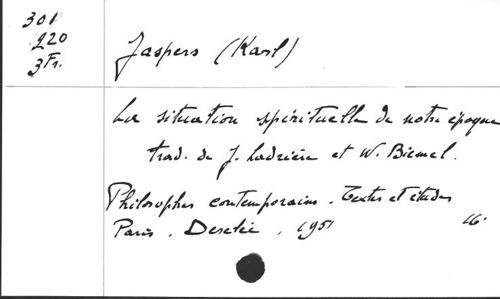 301
220
3 Fr.
Jaspers (Karl)
La situation spirituelle de notre époque
trad. de J. Ladrière et W. Biemel.
Philosophes contemporains. Textes et études
Paris. Desclée, 1951 16°